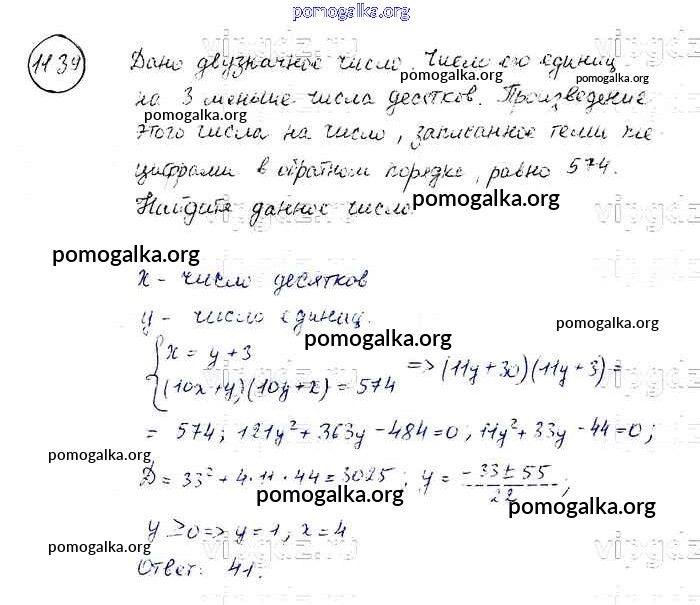 pomogalka.org
1134 Дано двузначное число. Число его единиц
pomogalka.org pomogalka.org
на 3 меньше числа десятков. Произведение
pomogalka.org
этого числа на число, записанное теми же
цифрами в обратном порядке, равно 574.
pomogalka.org
Найдите данное число.
pomogalka.org
x - число десятков
y - число единиц.
pomogalka.org pomogalka.org
{ x = y + 3
(10x+y)(10y+x) = 574 => (11y+30)(11y+3) =
= 574; 121y² + 363y - 484 = 0, 11y² + 33y - 44 = 0;
pomogalka.org
Д = 33² + 4·11·44 = 3025; y = (-33 ± 55)/22;
pomogalka.org pomogalka.org
y ≥ 0 => y = 1; x = 4
pomogalka.org pomogalka.org
Ответ: 41.
pomogalka.org